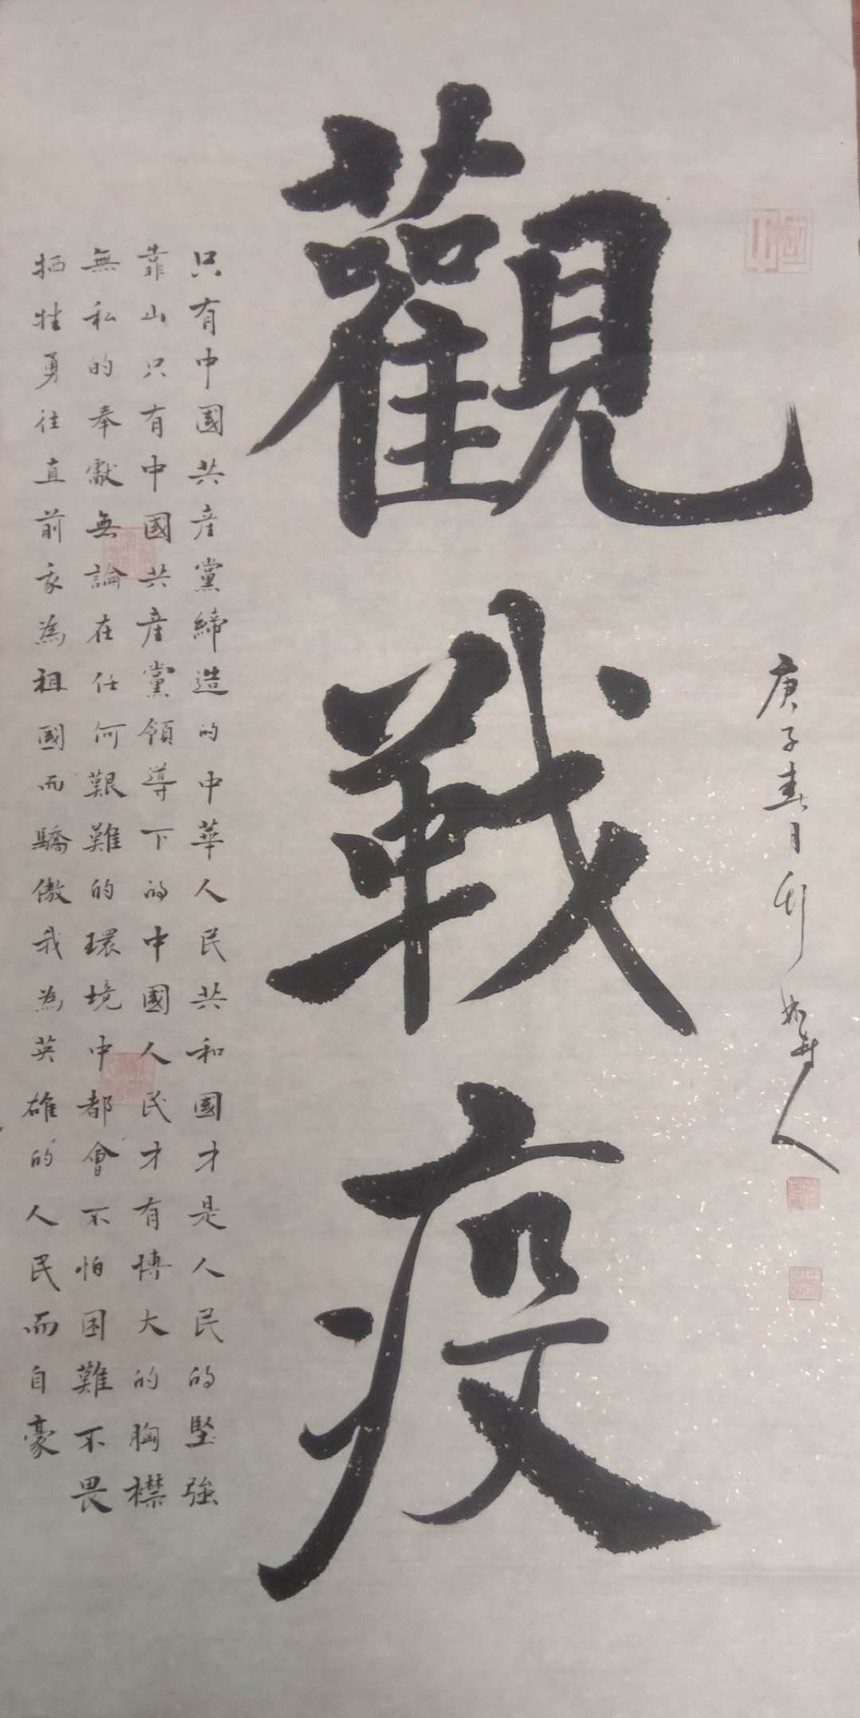 觀戰疫
只有中國共産黨締造的中華人民共和國才是人民的堅強
靠山只有中國共産黨領導下的中國人民才有博大的胸襟
無私的奉獻無論在任何艱難的環境中都會不怕困難不畏
牺牲勇往直前我為祖國而驕傲我為英雄的人民而自豪
庚子春月